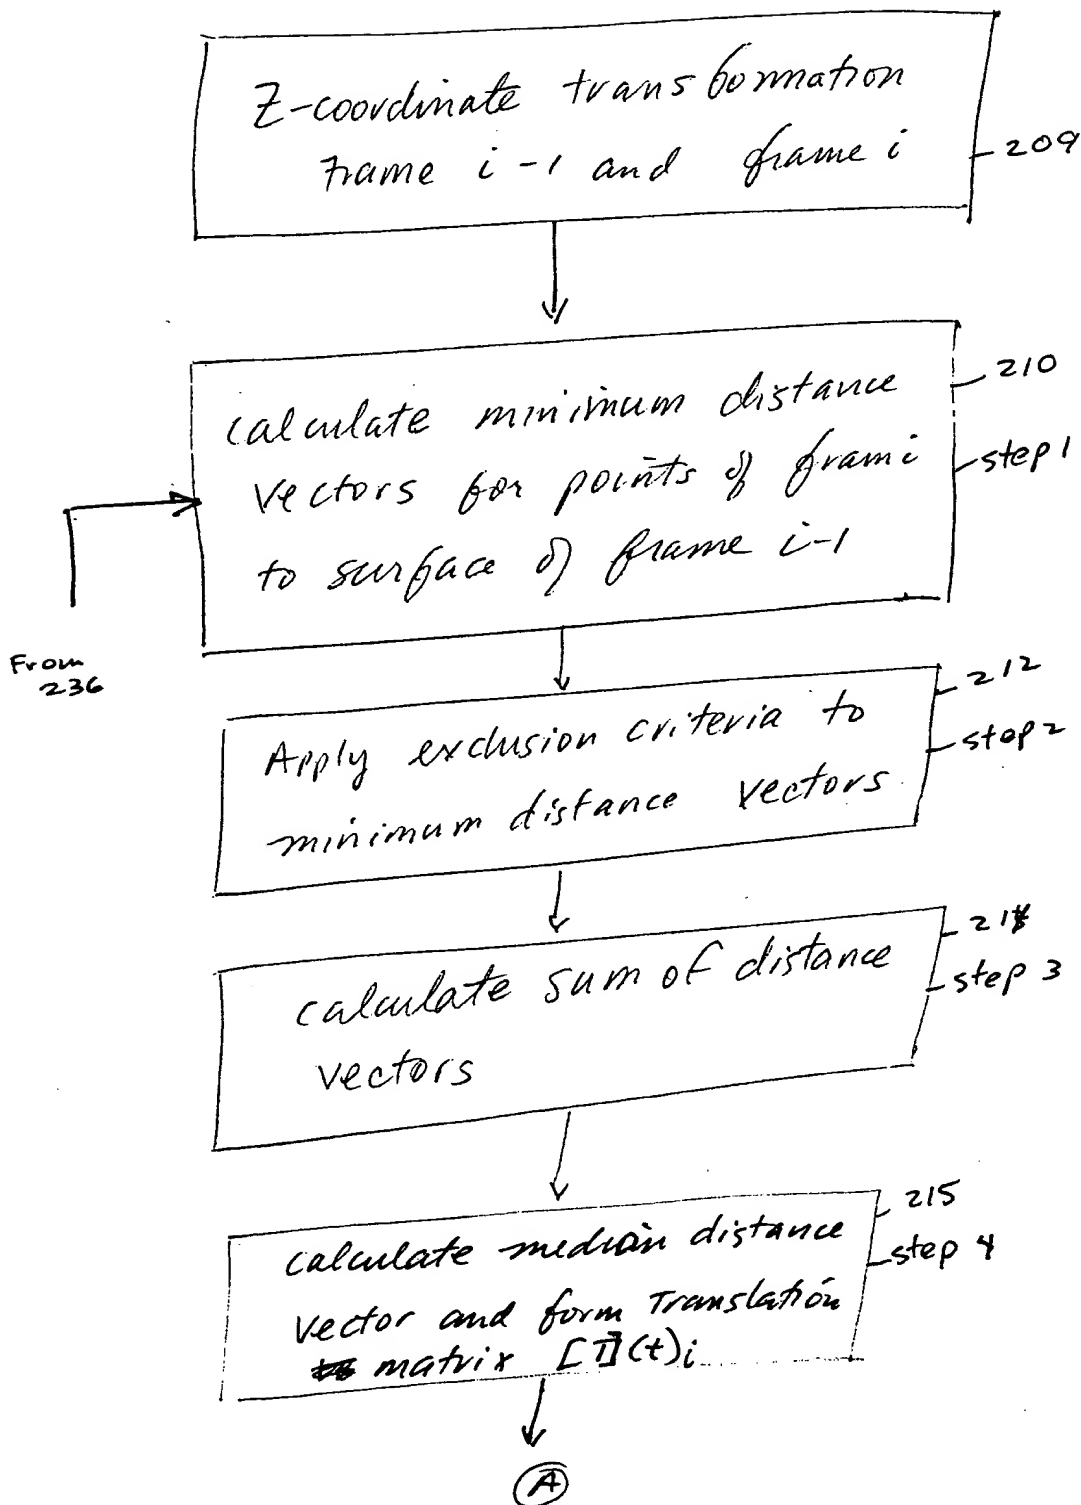 Z-coordinate transformation
Frame i-1 and frame i
209
210
calculate minimum distance
vectors for points of frame i
to surface of frame i-1
step 1
From
236
212
Apply exclusion criteria to
minimum distance vectors
step 2
calculate sum of distance
vectors
step 3
215
calculate median distance
vector and form Translation
matrix [T](t)i
step 4
A